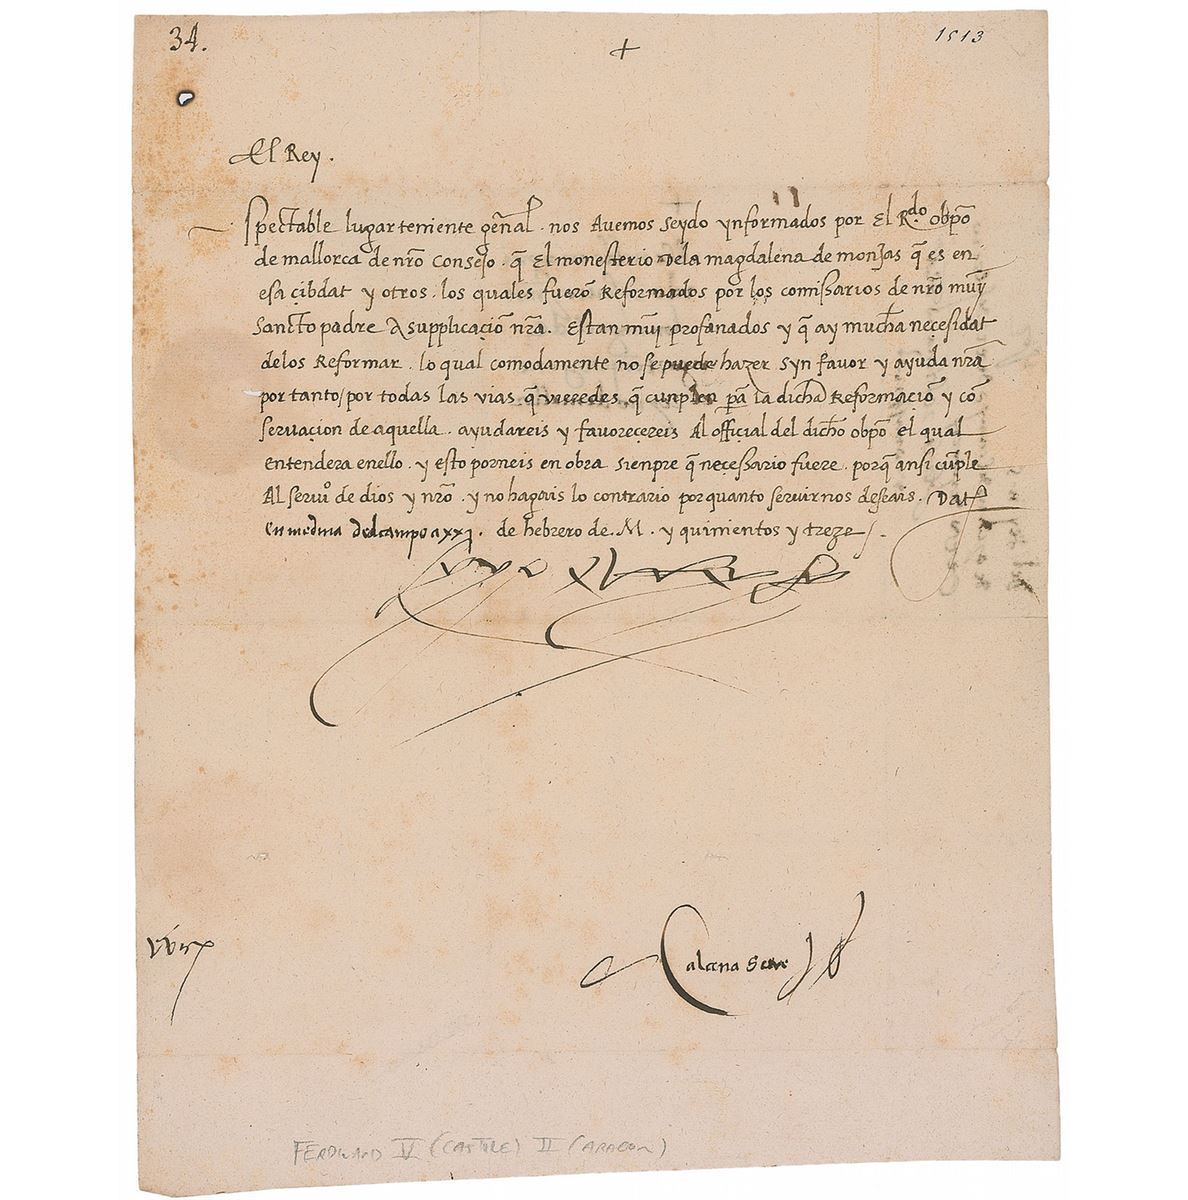 34.
+
1513
El Rey.
Spectable lugarteniente gñal. nos Avemos seydo ynformados por El Rdo obpo
de mallorca de nr̃o Consejo. q̃ El monesterio Dela magdalena de monJas q̃ es en
esa çibdat y otros. los quales fuerõ Reformados por los comissarios de nr̃o muy
Sancto padre A supplicaciõ nr̃a. Estan muy profanados y q̃ ay mucha necesidat
delos Reformar. lo qual comodamente no se puede hazer syn favor y ayuda nr̃a
por tanto/por todas las vias q̃ vieredes q̃ cunplen pã la dicha Reformaciõ y cõ
servacion de aquella. ayudareis y favoreçereis Al official del dicho obpo el qual
Entendera enello. y esto porneis en obra sienpre q̃ necessario fuere. porq̃ ansi cũple
Al serviº de dios y nr̃o. y no hagais lo contrario por quanto servirnos deseais. Dat
En medina del campo a xxj. de hebrero de. M. y quinientos y treze/.
Calcena Secre
FERDINAND IV (CASTILE) II (ARAGON)